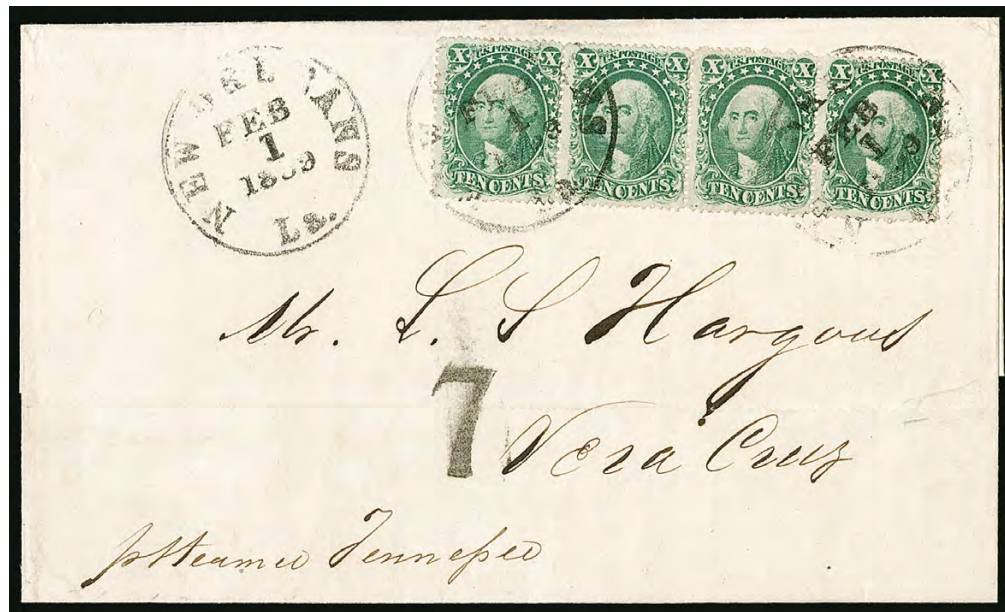 NEW ORLEANS La.
FEB
1
1859
X U.S. POSTAGE X
TEN CENTS
X U.S. POSTAGE X
TEN CENTS
X U.S. POSTAGE X
TEN CENTS
X U.S. POSTAGE X
TEN CENTS
FEB
1
Mr. L. S Hargous
7
Vera Cruz
p steamer Tennessee